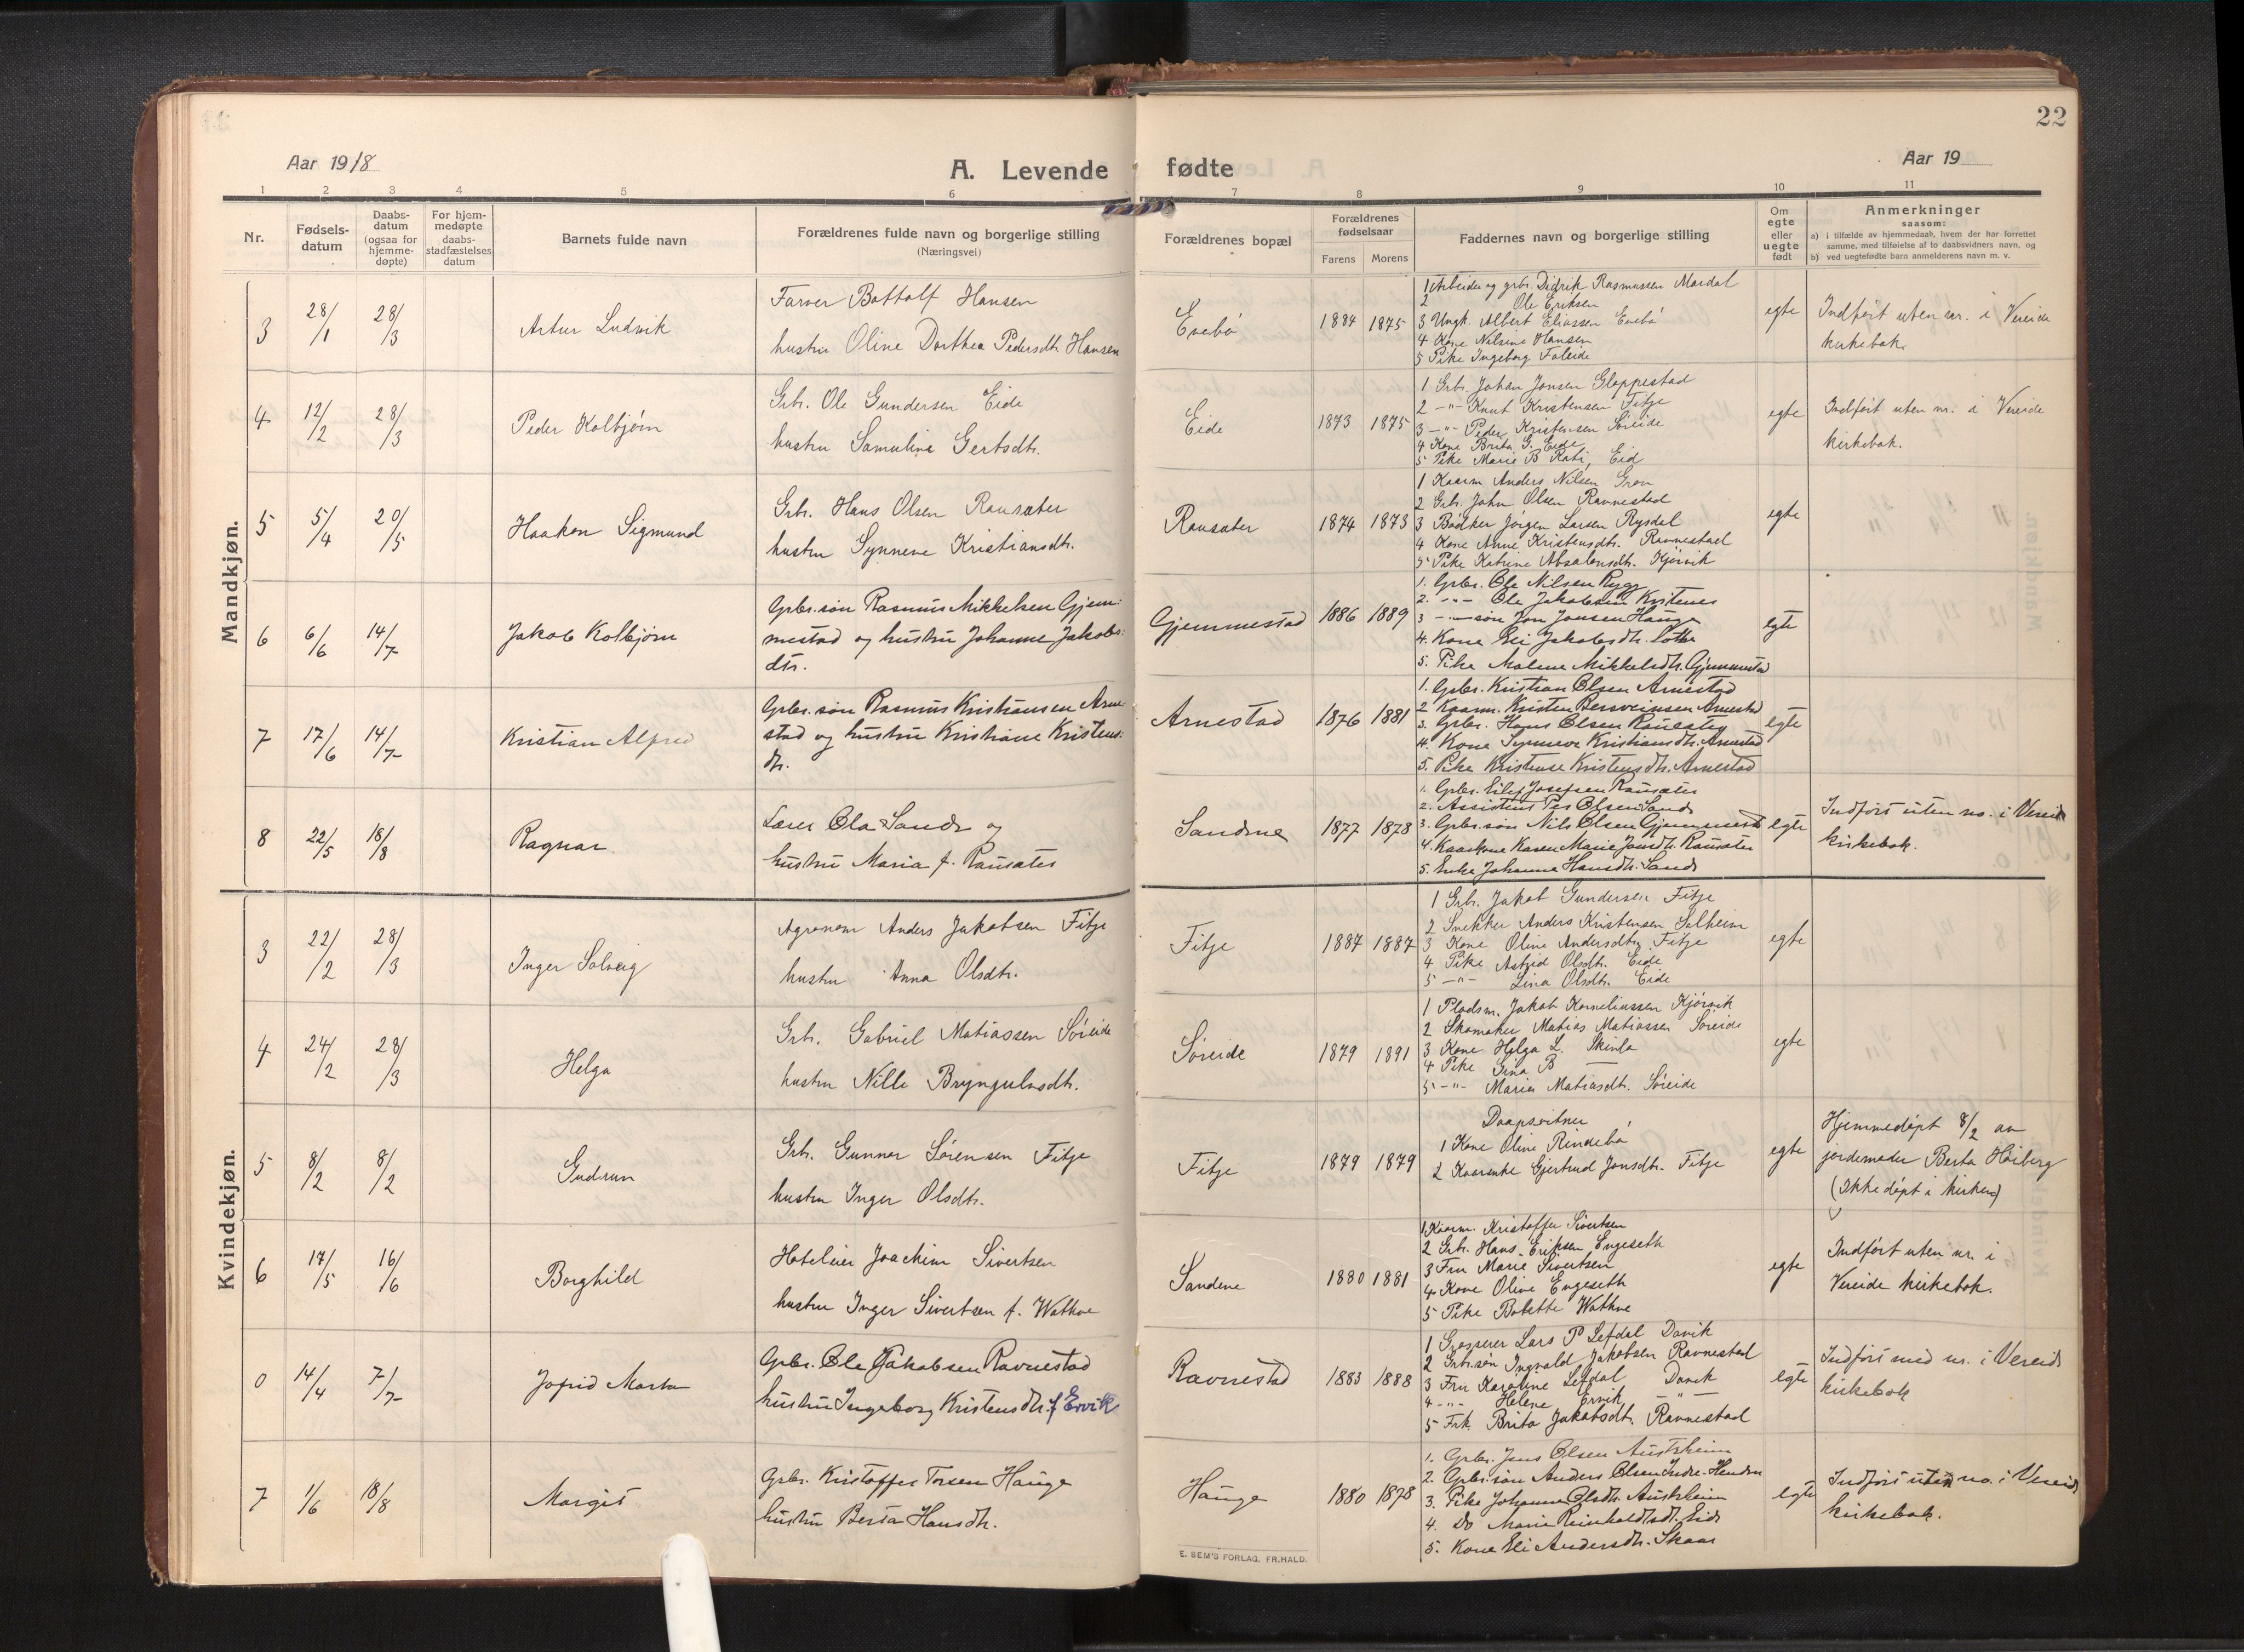 22
Aar 1918
A. Levende fødte
Aar 19
1 2 3 4 5 6 7 8 9 10 11
Nr.
Fødsels-
datum
Daabs-
datum
(ogsaa for
hjemme-
døpte)
For hjem-
medøpte
daabs-
stadfæstelses
datum
Barnets fulde navn
Forældrenes fulde navn og borgerlige stilling
(Næringsvei)
Forældrenes bopæl
Forældrenes
fødselsaar
Farens Morens
Faddernes navn og borgerlige stilling
Om
egte
eller
uegte
født
Anmerkninger
saasom:
a) i tilfælde av hjemmedaab, hvem der har forrettet
samme, med tilføielse af to daabsvidners navn, og
b) ved uegtefødte barn anmelderens navn m. v.
Mandkjøn.
3 28/1 28/3 Artur Ludvik
Farver Bottolf Hansen
hustru Oline Dorthea Pedersdtr. Hansen
Evebø 1884 1875
1 Arbeider og grbr. Didrik Rasmussen Mardal
2 Ole Eriksen
3 Ungk. Albert Eliassen Evebø
4 Kone Nilsine Hansen
5 Pike Ingeborg Faleide
egte
Indført uten nr. i Vereide
kirkebok.
4 12/2 28/3 Peder Kolbjørn
Grb. Ole Gundersen Eide
hustru Samuline Gertsdtr.
Eide 1873 1875
1 Grb. Johan Jonsen Gloppestad
2 -"- Knut Kristensen Fitje
3 -"- Peder Kristensen Søreide
4 Kone Brita G. Eide
5 Pike Marie B Eid
egte
Indført uten nr. i Vereide
kirkebok.
5 5/4 20/5 Haakon Sigmund
Grb. Hans Olsen Rausæter
hustru Synneve Kristiansdtr.
Rausæter 1874 1873
1 Kaarm Anders Nilsen
2 Grb. John Olsen Ravnestad
3 Bødker Jørgen Larsen Rysdal
4 Kone Anne Kristensdtr. Ravnestad
5 Pike Katrine Absalonsdtr. Kjørvik
egte
6 6/6 14/7 Jakob Kolbjørn
Grbr. søn Rasmus Mikkelsen Gjem-
mestad og hustru Johanne Jakobs-
dtr.
Gjemmestad 1886 1889
1. Grbr. Ole Nilsen Rygg
2. -"- Ole Jakobsen
3 -"- søn Jon Jonsen Hauge
4. Kone Eli Jakobsdtr. Lothe
5. Pike Malene Mikkelsdtr. Gjemmestad
egte
7 17/6 14/7 Kristian Alfred
Grbr. søn Rasmus Kristiansen Arne-
stad og hustru Kristiane Kristens-
dtr.
Arnestad 1876 1881
1. Grbr. Kristian Olsen Arnestad
2 Kaarm. Kristen Arnestad
3. Grbr. Hans Olsen
4. Kone Synneve Kristiansdtr. Arnestad
5. Pike Kristense Kristensdtr. Arnestad
egte
8 22/5 18/8 Ragnar
Lærer Ola Sande og
hustru Maria f. Rausæter
Sandene 1877 1878
1. Grbr. Eilef Josefsen Rausæter
2. Assistent Per Olsen Sande
3. Grbr. søn Nils Olsen Gjemmestad
4. Kaarkone Karen Marie Jonsdtr. Rausæter
5. Enke Johanne Hansdtr. Sande
egte
Indført uten no. i Vereide
kirkebok.
Kvindekjøn.
3 22/2 28/3 Inger Solveig
Agronom Anders Jakobsen Fitje
hustru Anna Olsdtr.
Fitje 1887 1887
1 Grb. Jakob Gundersen Fitje
2 Snekker Anders Kristensen Solheim
3 Kone Oline Andersdtr. Fitje
4 Pike Astrid Olsdtr. Eide
5 -"- Lina Olsdtr. Eide
egte
4 24/2 28/3 Helga
Grb. Gabriel Matiassen Søreide
hustru Nille Bryngulvsdtr.
Søreide 1879 1891
1 Pladsm. Jakob Korneliussen Kjørvik
2 Skomaker Matias Matiassen Søreide
3 Kone Helga L. Skinlo
4 Pike Sina B
5 -"- Maria Matiasdtr. Søreide
egte
5 8/2 8/2 Gudrun
Grb. Gunnar Sørensen Fitje
hustru Inger Olsdtr.
Fitje 1879 1879
Daapsvitner
1 Kone Oline Rindebø
2 Kaarenke Gjertrud Jonsdtr. Fitje
egte
Hjemmedøpt 8/2 av
jordemoder Berta Høiberg
(Ikke døpt i kirken)
6 17/5 16/6 Borghild
Hoteleier Joachim Sivertsen
hustru Inger Sivertsen f. Wathne
Sandene 1880 1881
1 Kaarm. Kristoffer Sivertsen
2 Grb. Hans Eriksen Engeseth
3 Fru Marie Sivertsen
4 Kone Oline Engeseth
5 Pike Bolette Wathne
egte
Indført uten nr. i
Vereide kirkebok.
0 14/4 7/7 Jofrid Marta
Grbr. Ole Jakobsen Ravnestad
hustru Ingeborg Kristensdtr. f Ervik
Ravnestad 1883 1888
1 Grosserer Lars P Lefdal Davik
2 Grb. søn Ingvald Jakobsen Ravnestad
3 Fru Karoline Lefdal Davik
4 -"- Helene Ervik -"-
5 Frk. Brita Jakobsdtr. Ravnestad
egte
Indført med nr. i Vereide
kirkebok
7 1/6 18/8 Margit
Grbr. Kristoffer Torsen Hauge
hustru Berta Hansdtr.
Hauge 1880 1878
1. Grbr. Jens Olsen Austrheim
2. Grbr. søn Anders Olsen Indre-Henden
3. Pike Johanne Olsdtr. Austrheim
4. Do Marie Reinholdtsdtr. Eide
5. Kone Eli Andersdtr. Skaar
egte
Indført uten no. i Vereide
kirkebok.
E. SEM'S FORLAG, FR.HALD.